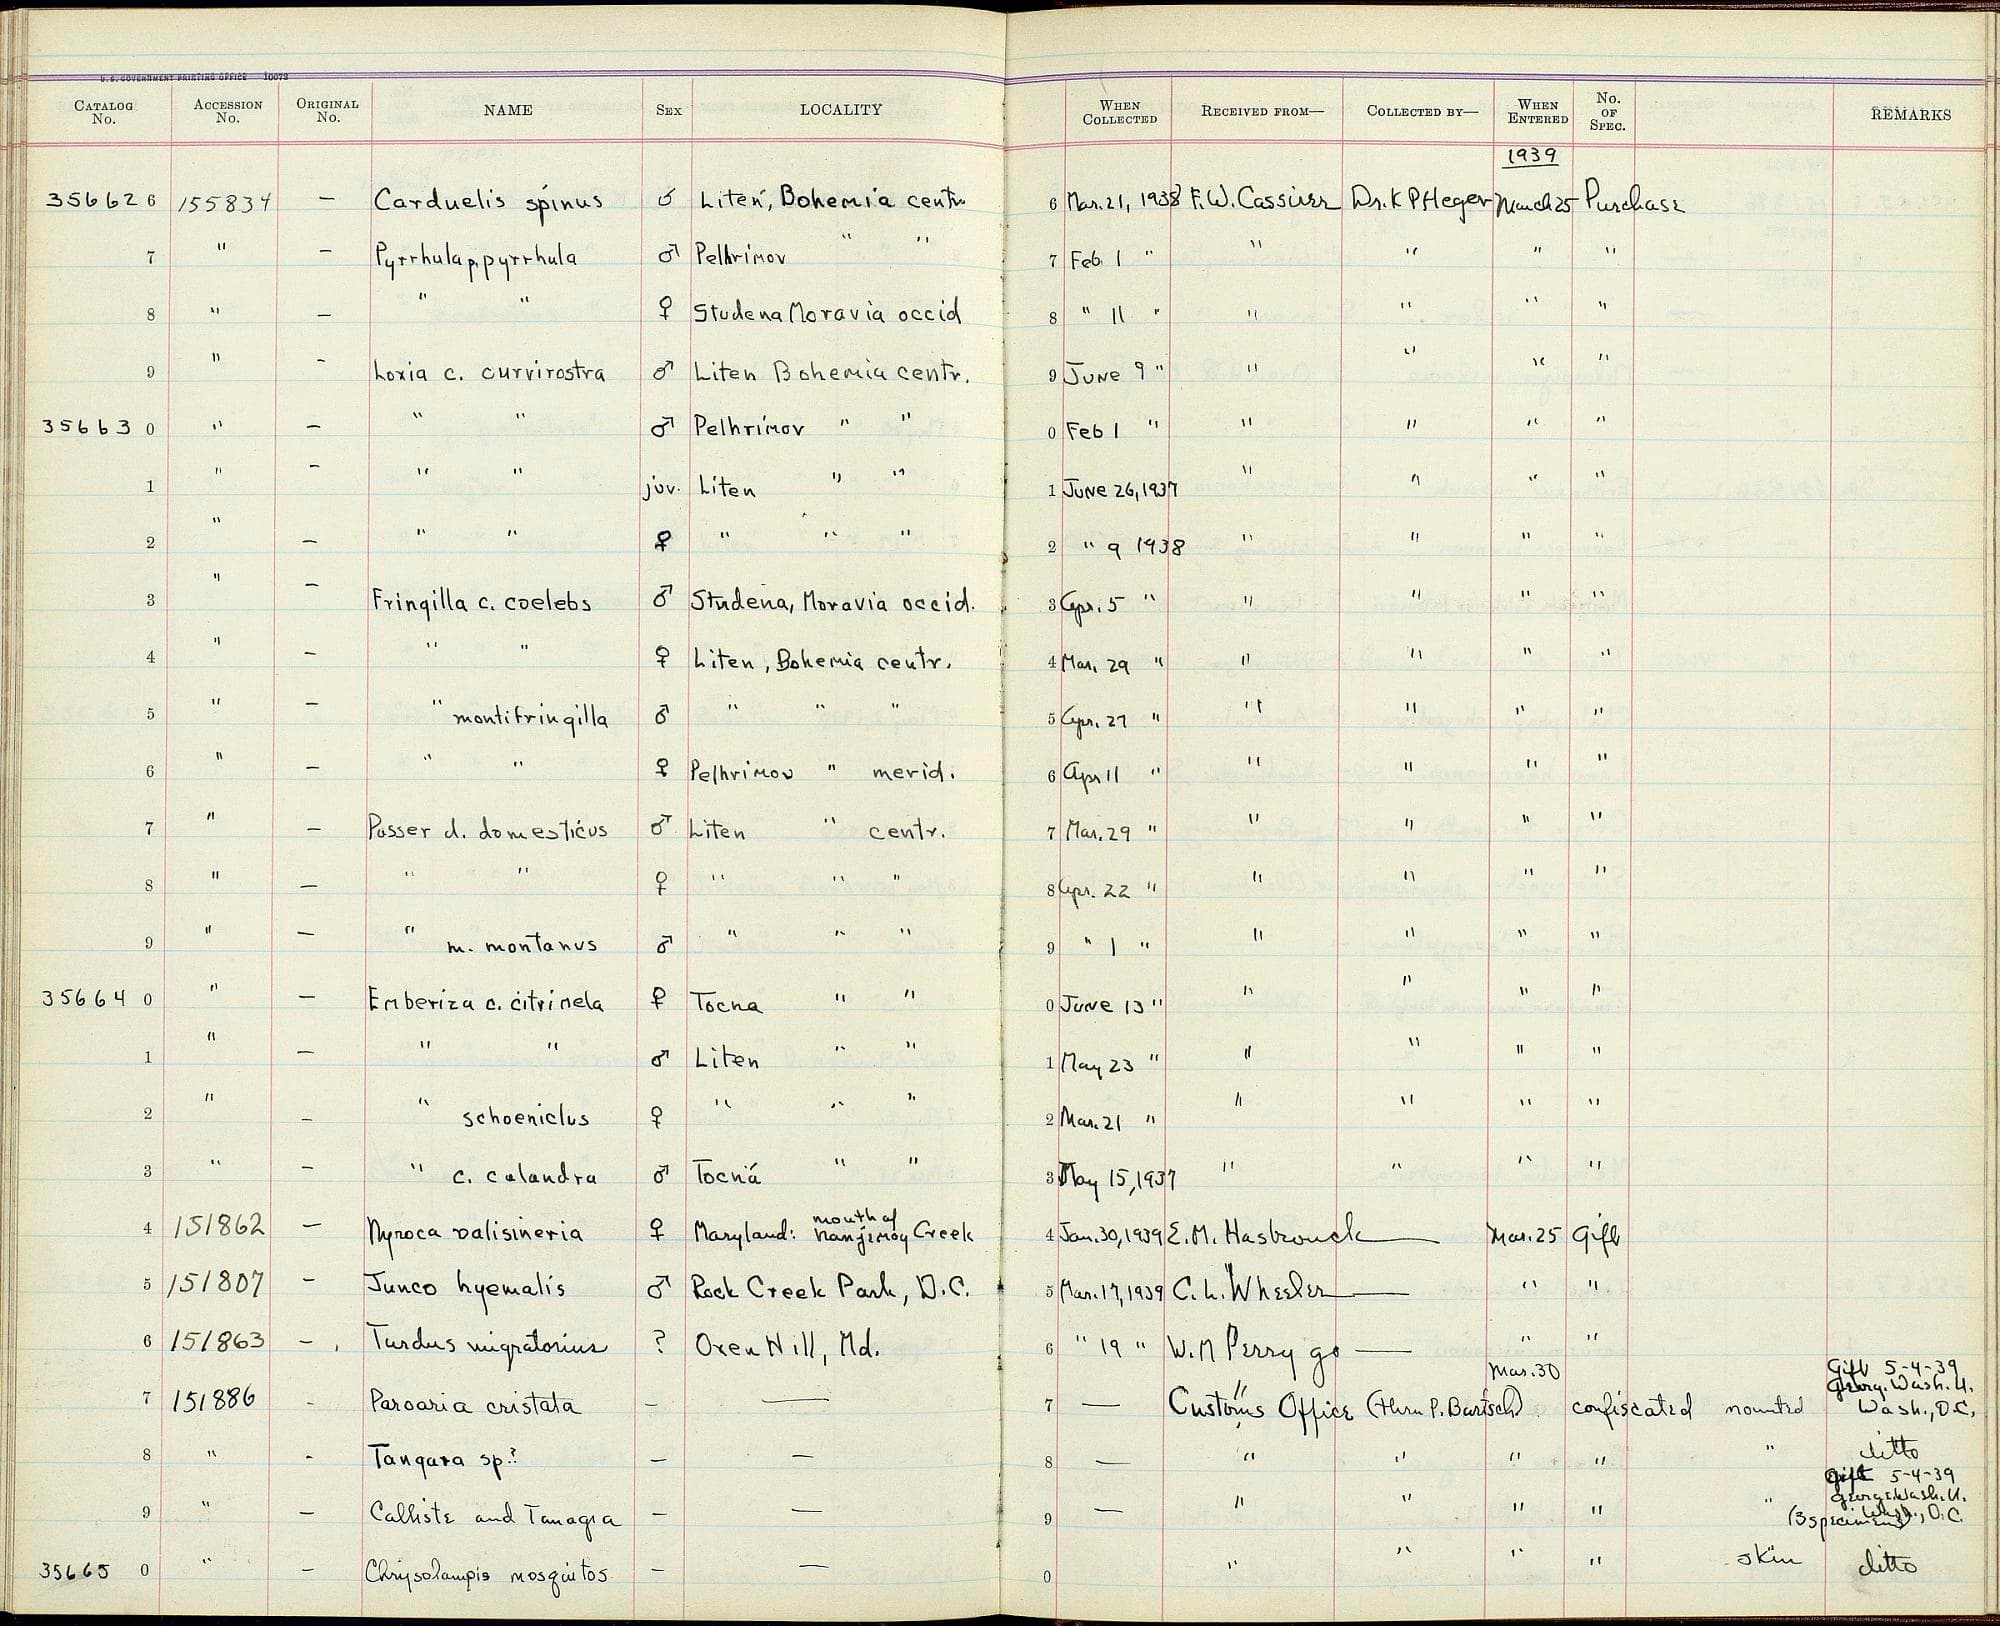 U.S. GOVERNMENT PRINTING OFFICE 10073
CATALOG No. ACCESSION No. ORIGINAL No. NAME SEX LOCALITY WHEN COLLECTED RECEIVED FROM— COLLECTED BY— WHEN ENTERED No. OF SPEC. REMARKS
1939
356626 155834 — Carduelis spinus ♂ Liteń, Bohemia centr. 6 Mar. 21, 1938 F. W. Cassirer Dr. K Pfleger March 25 Purchase
7 " — Pyrrhula p. pyrrhula ♂ Pelhrimov " " 7 Feb. 1 " " " " "
8 " — " " ♀ Studena Moravia occid 8 " 11 " " " " "
9 " — Loxia c. curvirostra ♂ Liten Bohemia centr. 9 June 9 " " " " "
356630 " — " " ♂ Pelhrimov " " 0 Feb 1 " " " " "
1 " — " " juv. Liten " " 1 June 26, 1937 " " " "
2 " — " " ♀ " " " 2 " 9 1938 " " " "
3 " — Fringilla c. coelebs ♂ Studena, Moravia occid. 3 Apr. 5 " " " " "
4 " — " " ♀ Liten, Bohemia centr. 4 Mar. 29 " " " " "
5 " — " montifringilla ♂ " " " 5 Apr. 27 " " " " "
6 " — " " ♀ Pelhrimov " merid. 6 Apr 11 " " " " "
7 " — Passer d. domesticus ♂ Liten " centr. 7 Mar. 29 " " " " "
8 " — " " ♀ " " " 8 Apr. 22 " " " " "
9 " — " m. montanus ♂ " " " 9 " 1 " " " " "
356640 " — Emberiza c. citrinela ♀ Tocna " " 0 June 13 " " " " "
1 " — " " ♂ Liten " " 1 May 23 " " " " "
2 " — " schoeniclus ♀ " " " 2 Mar. 21 " " " " "
3 " — " c. calandra ♂ Tocná " " 3 May 15, 1937 " " " "
4 151862 — Nyroca valisineria ♀ Maryland: mouth of Nanjemoy Creek 4 Jan. 30, 1939 E. M. Hasbrouck — Mar. 25 Gift
5 151807 — Junco hyemalis ♂ Rock Creek Park, D.C. 5 Mar. 17, 1939 C. L. Wheeler — " "
6 151863 — Turdus migratorius ? Oxen Hill, Md. 6 " 19 " W. M Perrygo — " "
7 151886 - Paroaria cristata — — 7 — Customs Office (thru P. Bartsch) Mar. 30 confiscated mounted Gift 5-4-39 Georg. Wash. U. Wash., D.C.
8 " - Tangara sp.? — — 8 — " " " " " ditto
9 " — Calliste and Tanagra — — 9 — " " " " " (3 specimens) Gift 5-4-39 George Wash. U. Wash., D.C.
356650 " — Chrysolampis mosquitos — — 0 " " " " skin ditto